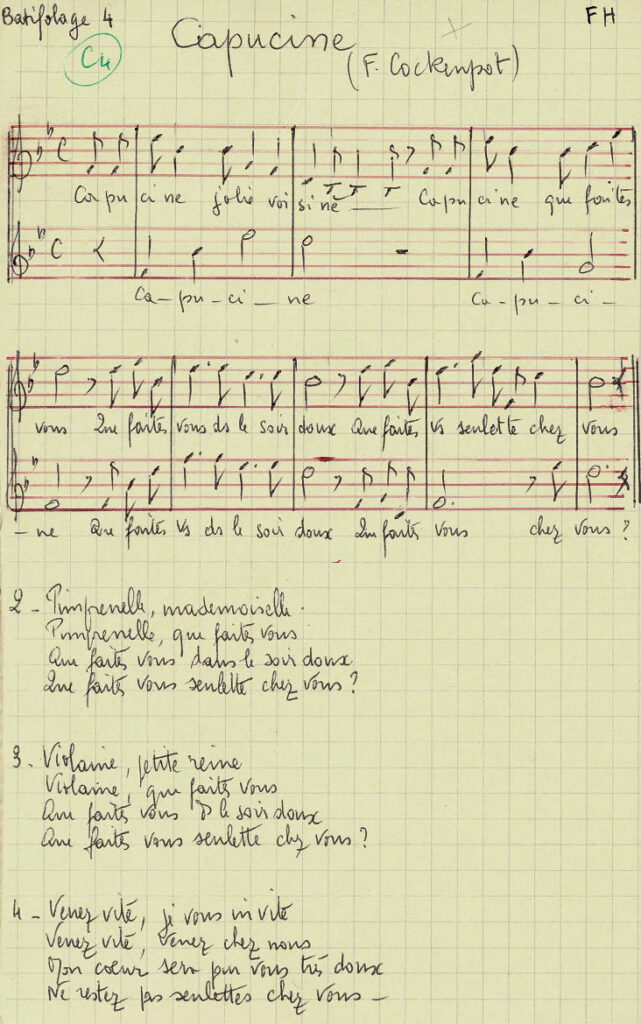 Batifolage 4
FH
C4
Capucine
(F. Cockenpot)
Capu cine jolie voi sine Capu cine que faites
Ca-pu-ci-ne Ca-pu-ci-
vous Que faites vous ds le soir doux Que faites vs seulette chez vous
-ne Que faites vs ds le soir doux Que faites vous chez vous ?
2 - Pimprenelle, mademoiselle.
Pimprenelle, que faites vous
Que faites vous dans le soir doux
Que faites vous seulette chez vous ?
3. Violaine, petite reine
Violaine, que faites vous
Que faites vous ds le soir doux
Que faites vous seulette chez vous ?
4 - Venez vite, je vous invite
Venez vite, venez chez nous
Mon coeur sera pour vous très doux
Ne restez pas seulettes chez vous -